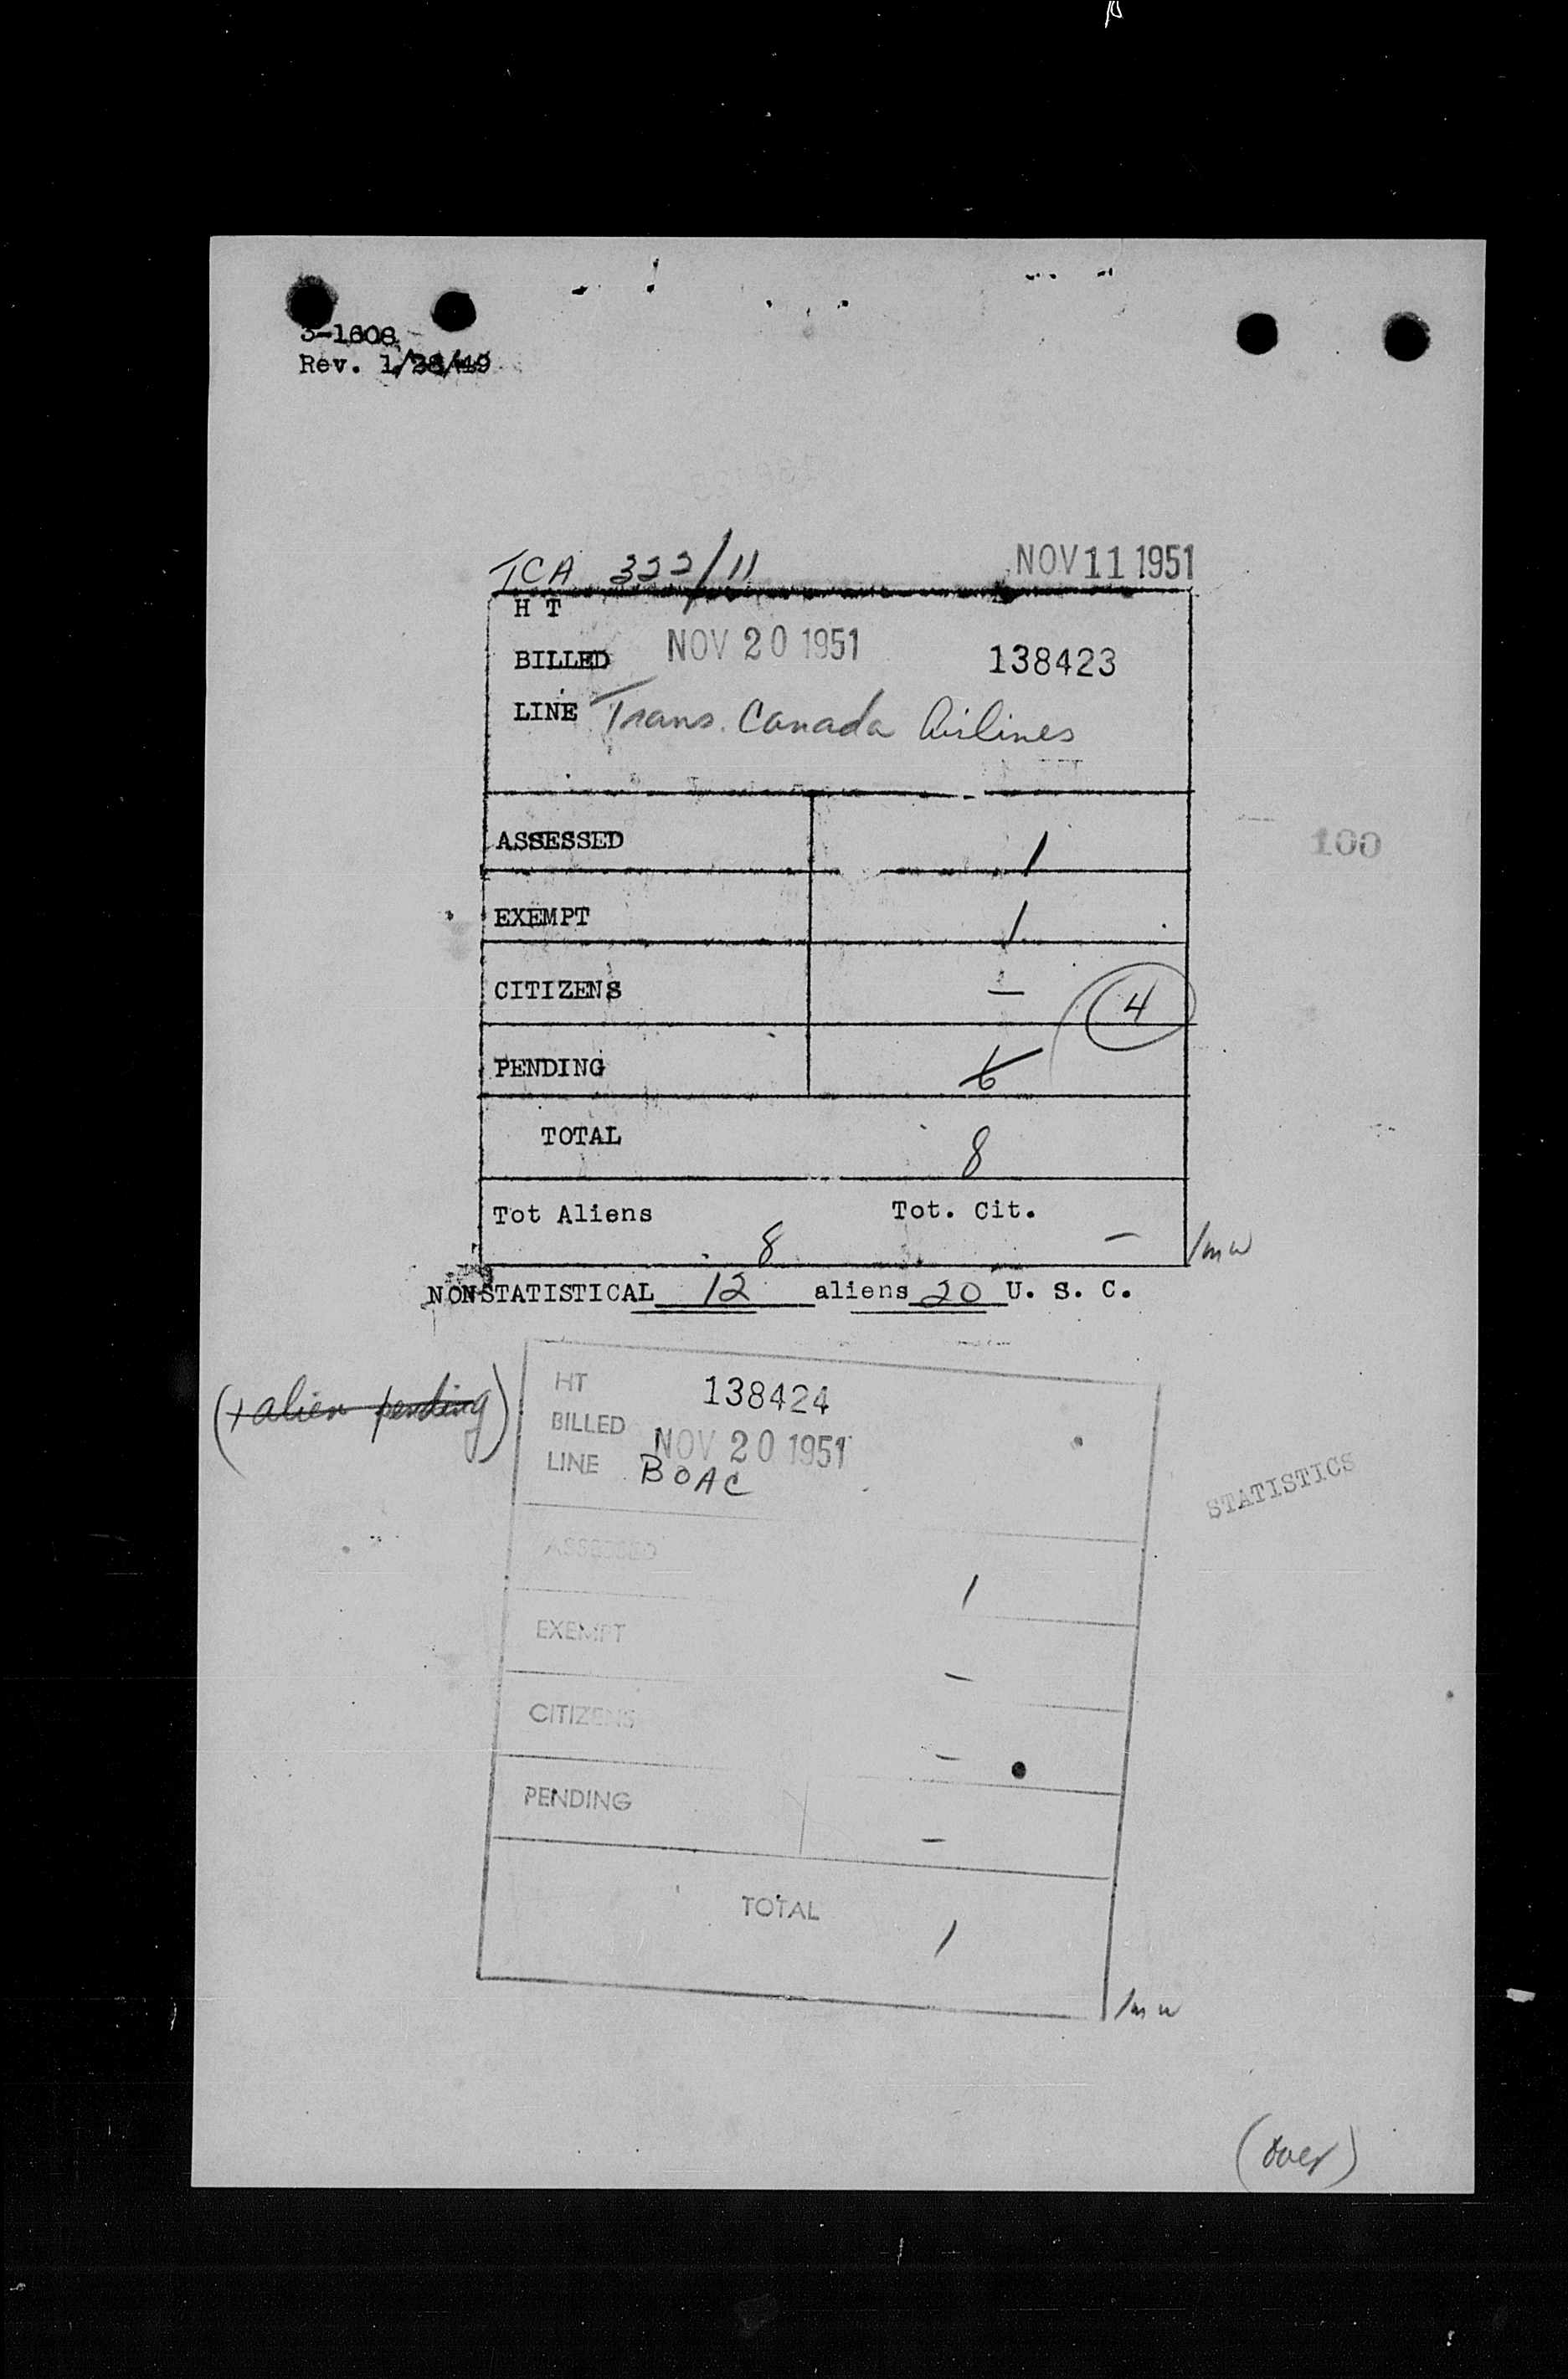 3-1608
Rev. 1/28/49
TCA 322/11 NOV 11 1951
H T
BILLED NOV 20 1951 138423
LINE Trans. Canada Airlines
ASSESSED 1
100
EXEMPT 1
CITIZENS — 4
PENDING 6
TOTAL 8
Tot Aliens 8 Tot. Cit. —
/mw
NONSTATISTICAL 12 aliens 20 U. S. C.
(1 alien pending)
HT 138424
BILLED NOV 20 1951
LINE BOAC
STATISTICS
ASSESSED 1
EXEMPT —
CITIZENS —
PENDING —
TOTAL 1
/mw
(over)